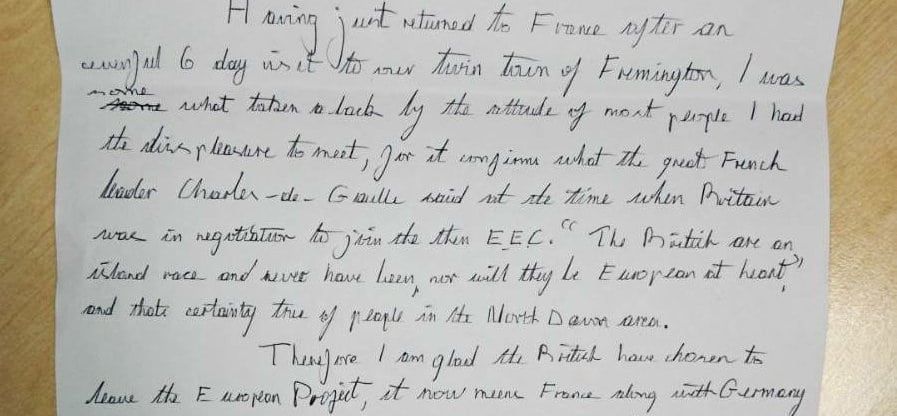 Having just returned to France after an
eventful 6 day visit to our twin town of Fremington, I was
some what taken a back by the attitude of most people I had
the displeasure to meet, for it confirms what the great French
leader Charles-de-Gaulle said at the time when Britain
was in negotiation to join the then EEC. "The British are an
island race and never have been, nor will they be European at heart",
and thats certainty true of people in the North Devon area.
Therefore I am glad the British have chosen to
leave the European Project, it now means France along with Germany